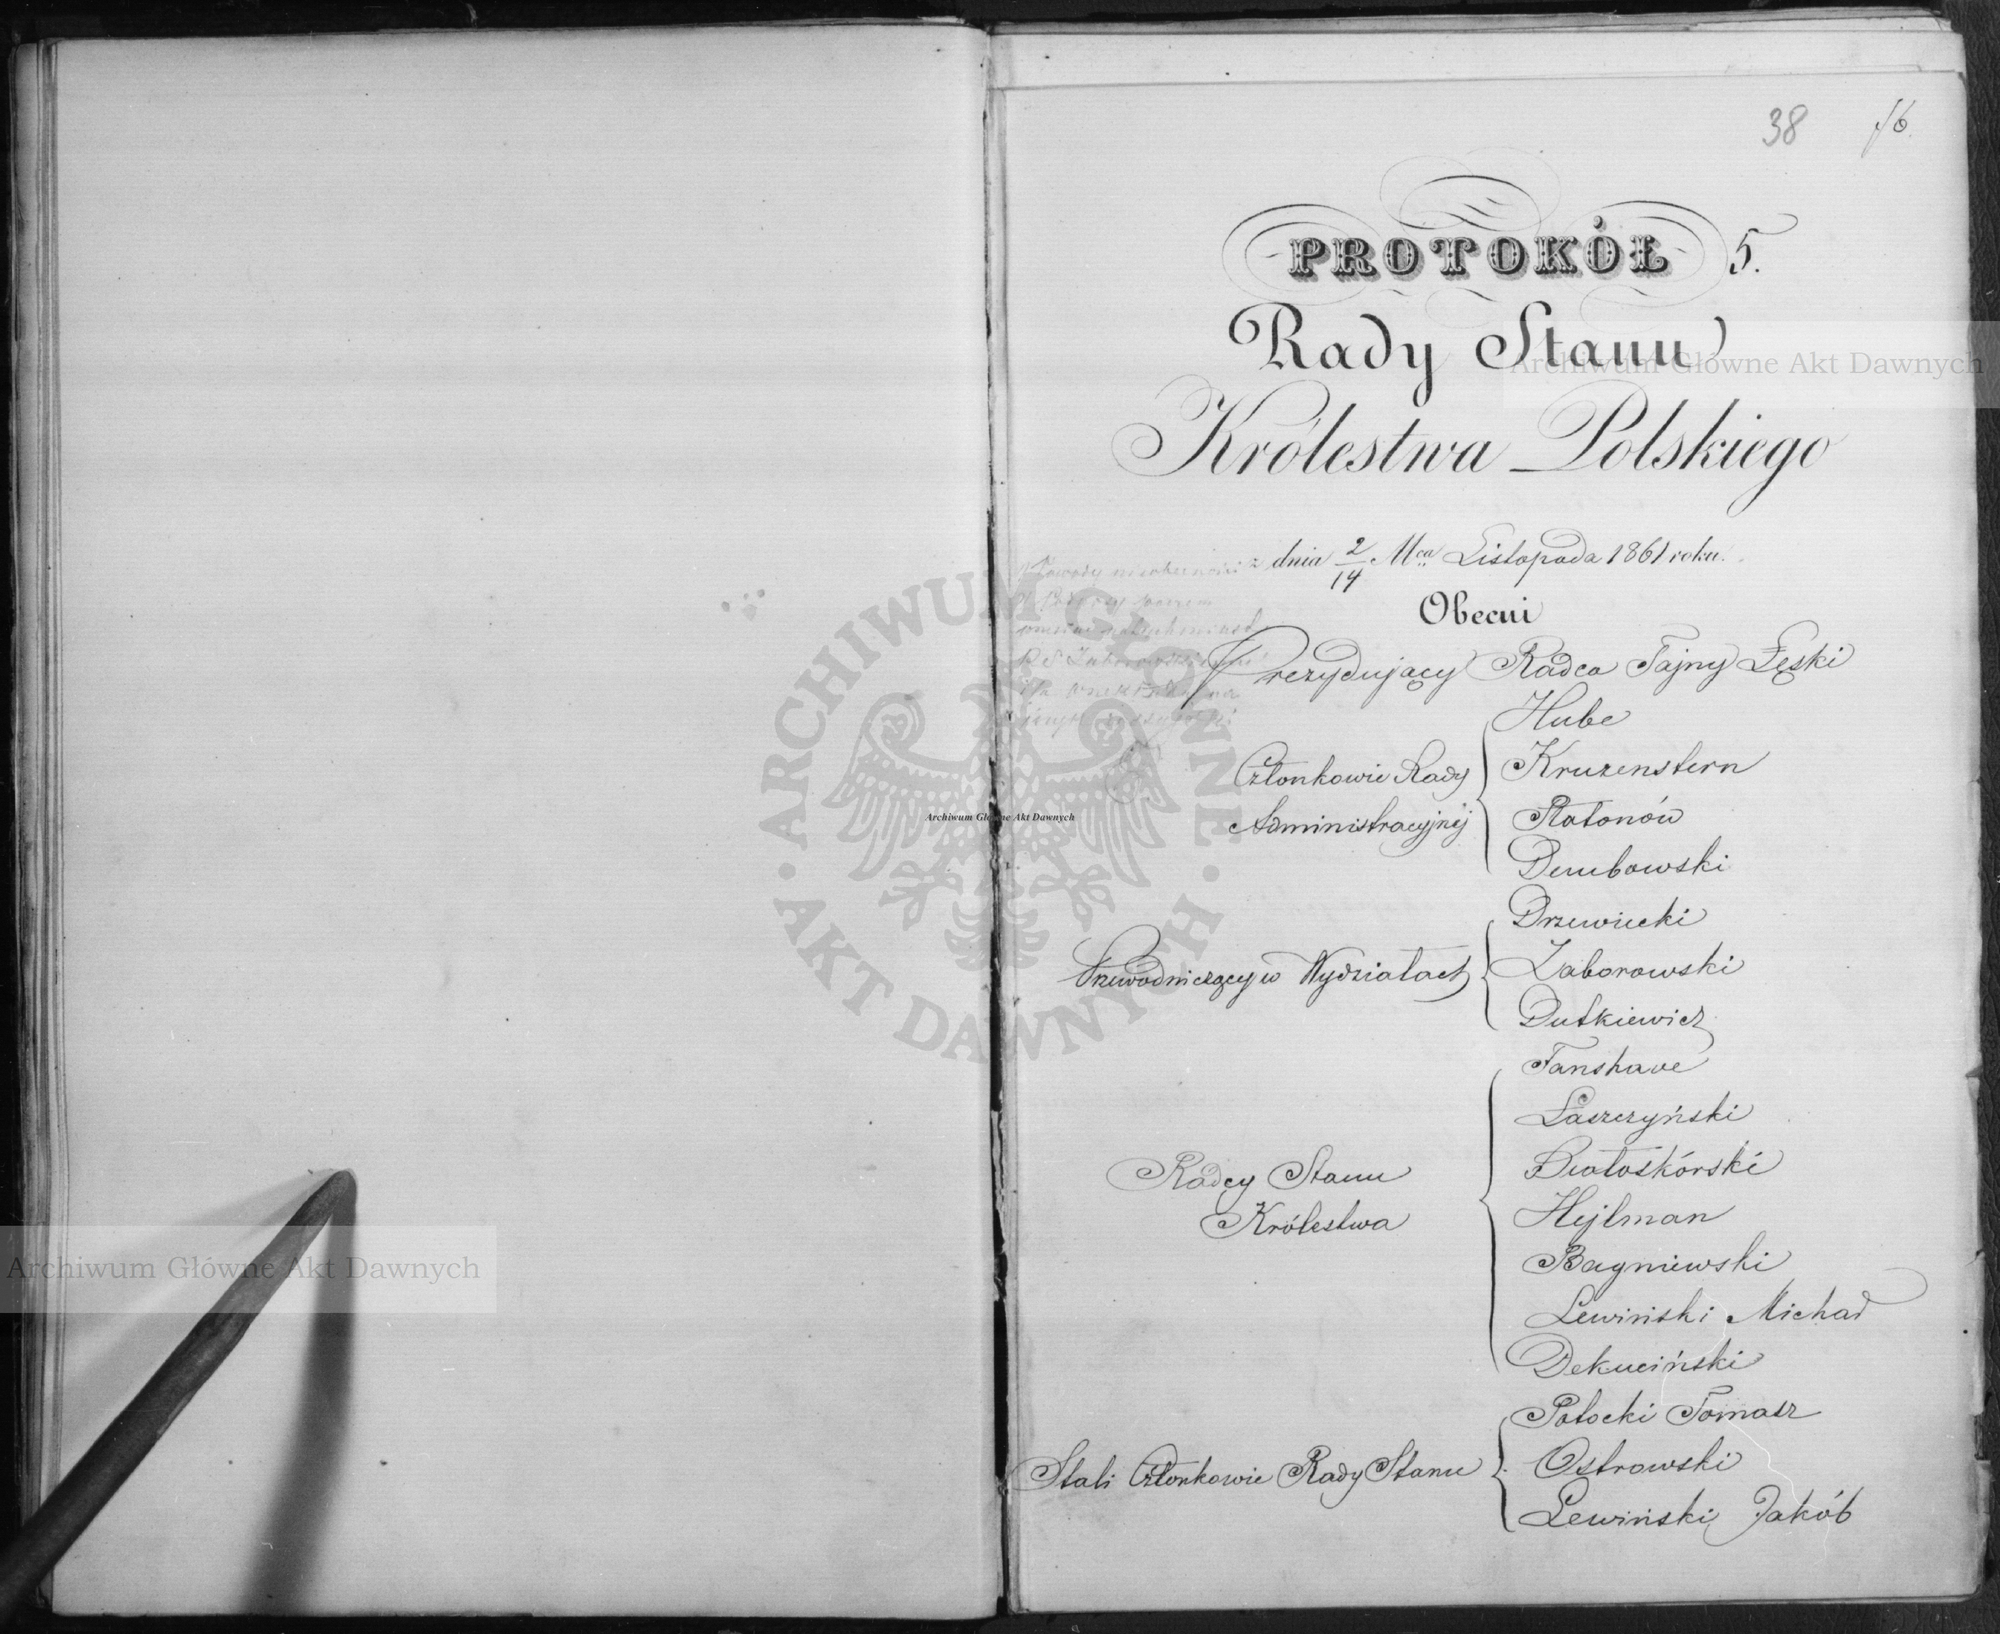 38 76.
PROTOKÓŁ 5.
Rady Stanu
Królestwa Polskiego
z dnia 2/14 Mca Listopada 1861 roku.
Obecni
Prezydujący Radca Tajny Łęski
Członkowie Rady Administracyjnéj
Hube
Kruzenstern
Płatonów
Dembowski
Przewodniczący w Wydziałach
Drzewiecki
Zaborowski
Dutkiewicz
Radcy Stanu
Królestwa
Fanshave
Łaszczyński
Białoskórski
Hejlman
Bagniewski
Lewiński Michał
Dekuciński
Stali Członkowie Rady Stanu
Potocki Tomasz
Ostrowski
Lewiński Jakób
Archiwum Główne Akt Dawnych
Archiwum Główne Akt Dawnych
Archiwum Główne Akt Dawnych
ARCHIWUM GŁÓWNE
AKT DAWNYCH